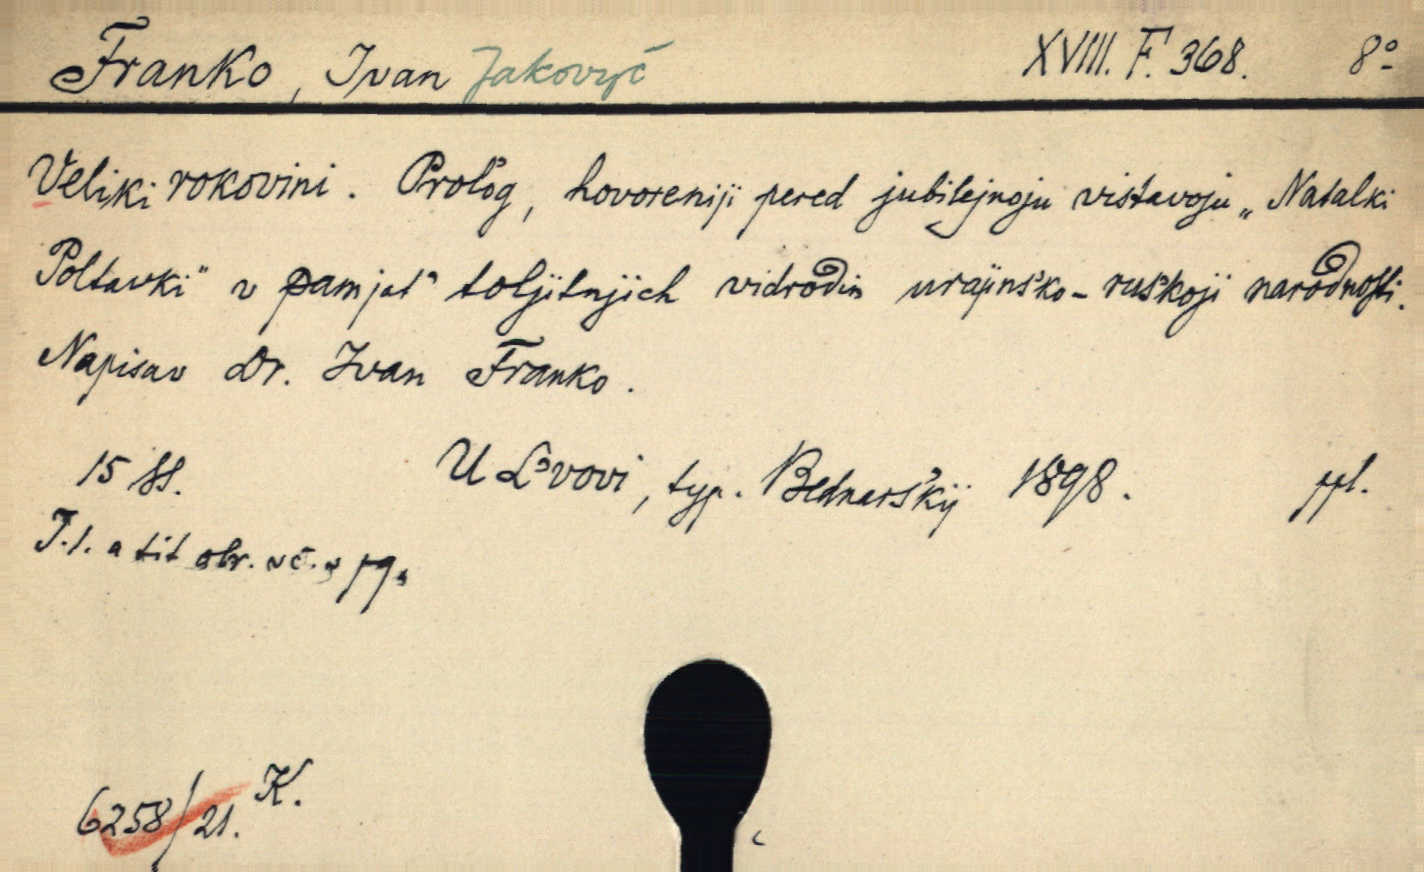 Franko, Ivan Jakovyč XVIII. F. 368. 8º
Veliki rokovini. Prol'og, hovoreniji pered jubilejnoju vistavoju „Natalki
Poltavki" v pamjat' toljitnjich vidrodin urajins'ko-rus'koji narodnosti.
Napisav Dr. Ivan Franko.
15 SS. U L'vovi, typ. Bednars'kij 1898. ppl.
T. l. a tit obr. v č.
6258/21. K.